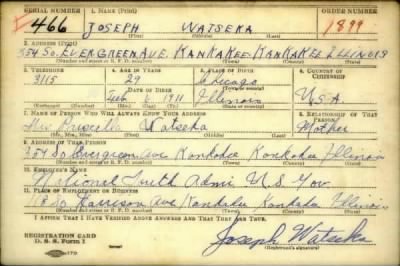 SERIAL NUMBER 1. NAME (Print) ORDER NUMBER
466 JOSEPH WATSEKA 1899
2. ADDRESS (Print)
354 So. EVERGREEN AVE. KANKAKEE - KANKAKEE ILLINOIS
(Number and street or R. F. D. number) (Town) (County) (State)
3. TELEPHONE 4. AGE IN YEARS 5. PLACE OF BIRTH 6. COUNTRY OF CITIZENSHIP
3115 29 Chicago
DATE OF BIRTH
Feb 6 1911 Illinois U.S.A
(Exchange) (Number) (Mo.) (Day) (Yr.) (State or country)
7. NAME OF PERSON WHO WILL ALWAYS KNOW YOUR ADDRESS 8. RELATIONSHIP OF THAT PERSON
Mrs Priscilla Watseka Mother
(Mr., Mrs., Miss) (First) (Middle) (Last)
9. ADDRESS OF THAT PERSON
354 So Evergreen Ave Kankakee Kankakee Illinois
(Number and street or R. F. D. number) (Town) (County) (State)
10. EMPLOYER'S NAME
National Youth Admi U.S. Gov
11. PLACE OF EMPLOYMENT OR BUSINESS
So Harrison Ave Kankakee Kankakee Illinois
(Number and street or R. F. D. number) (Town) (County) (State)
I AFFIRM THAT I HAVE VERIFIED ABOVE ANSWERS AND THAT THEY ARE TRUE.
REGISTRATION CARD
D. S. S. Form 1 Joseph Watseka
(Registrant's signature)